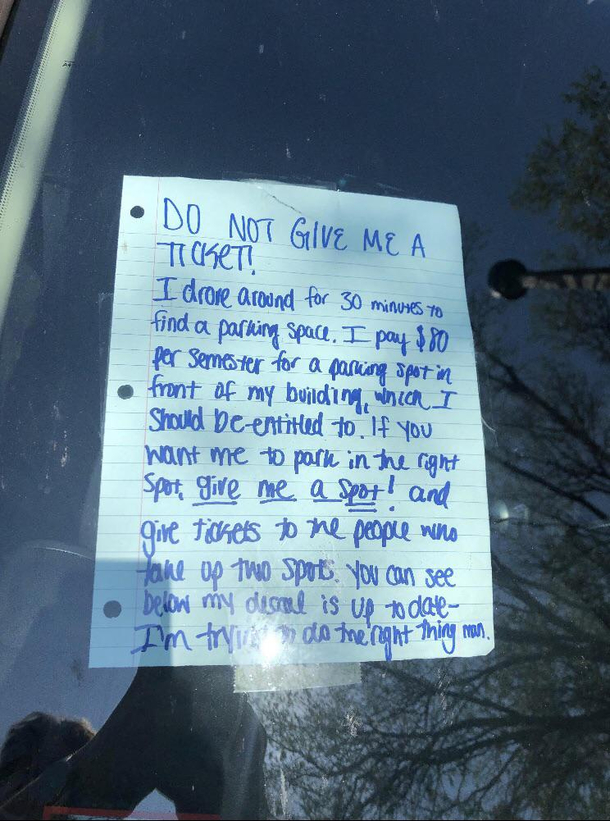 DO NOT GIVE ME A
TICKET!
I drove around for 30 minutes to
find a parking space. I pay $80
per semester for a parking spot in
front of my building, which I
should be entitled to. If you
want me to park in the right
spot, give me a spot! and
give tickets to the people who
take up two spots. you can see
below my decal is up to date-
I'm trying to do the right thing man.